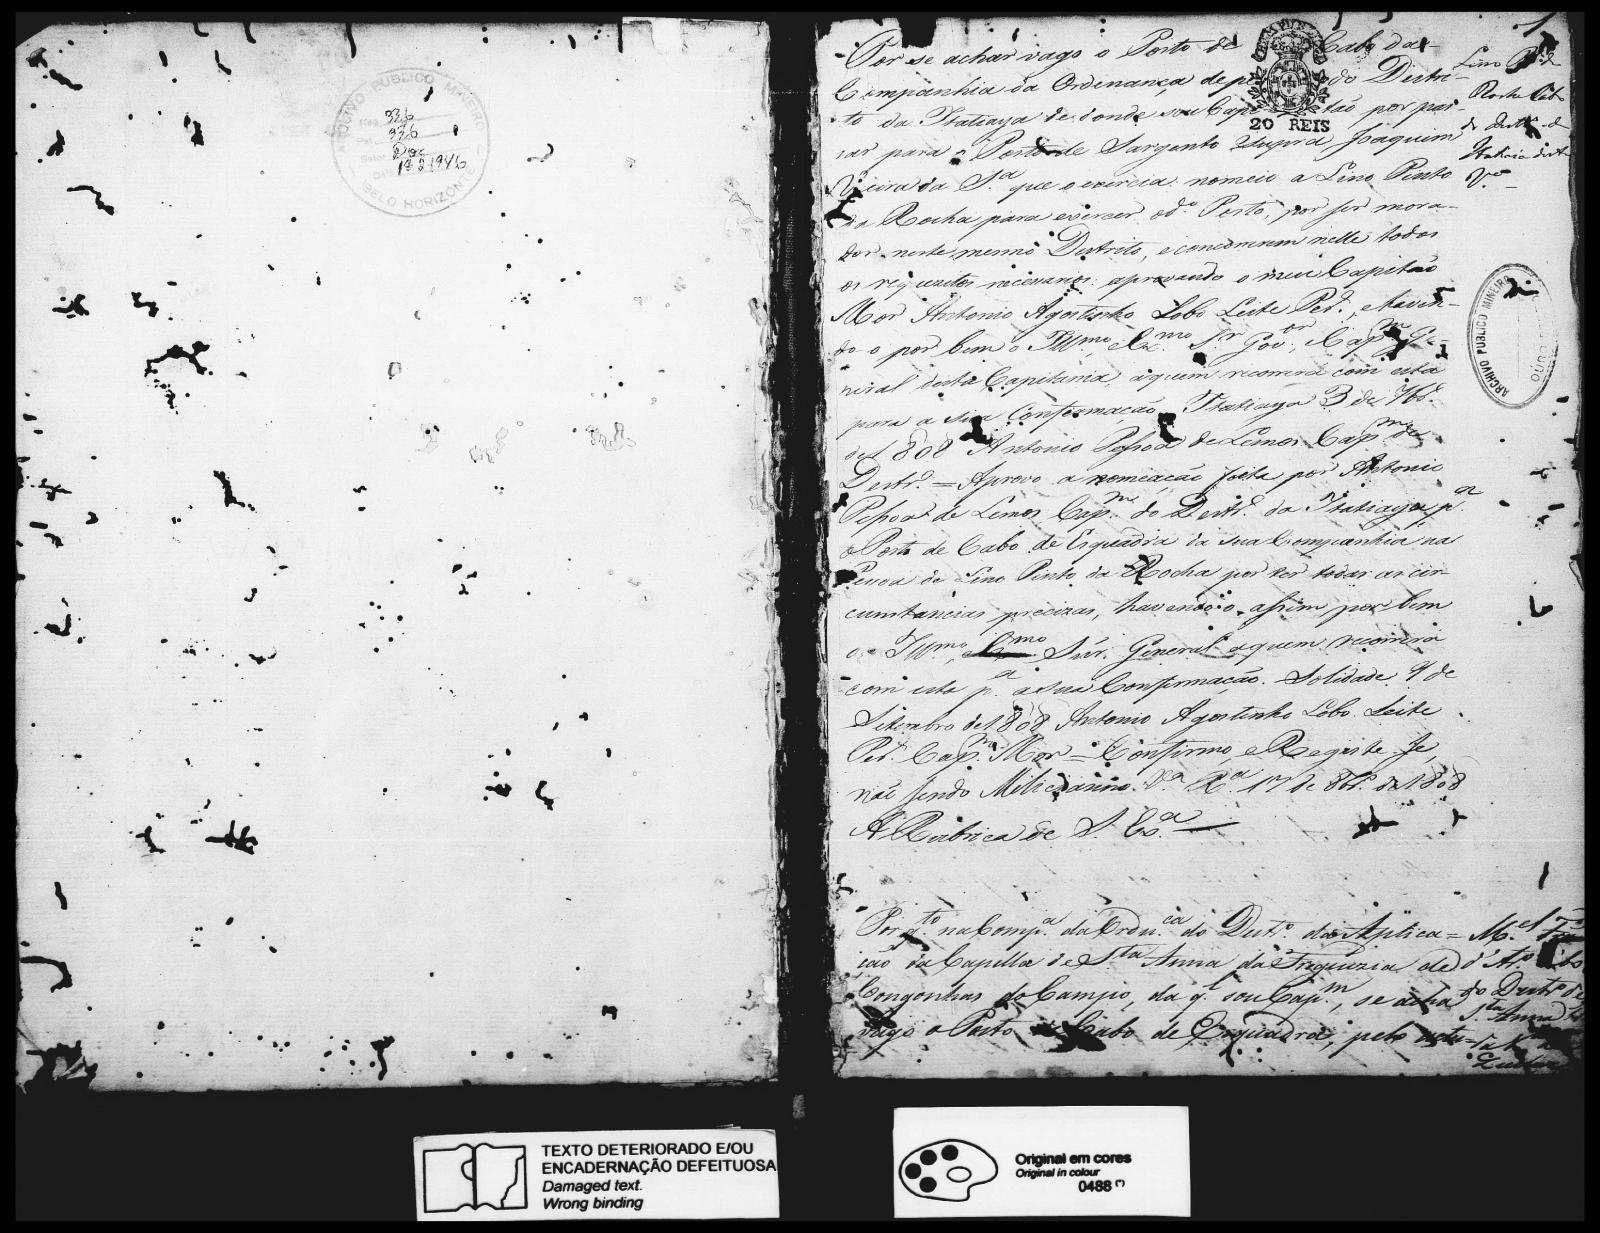 ARCHIVO PUBLICO MINEIRO
BELO HORIZONTE
936
936
1946
1
20 REIS
Por se achar vago o Posto de Cabo da
Companhia da Ordenança de pé do Distri-
to da Itatiaya de donde sou Capitão por pas-
sar para o Posto de Sargento Supra Joaquim
Vieira da S.ª que o exercia: nomeio a Lino Pinto
da Rocha para exercer o d.º Posto, por ser mora-
dor neste mesmo Destrito, e concorrerem nelle todos
os requezitos necesarios: aprovando o meu Capitão
Mor Antonio Agostinho Lobo Leite Per.ª, e haven-
do o por bem o Illmo. e Exmo. Sr. Gov.or, e Cap.m Ge-
neral desta Capitania, aquem recorrerá com esta
para a sua Confermação. Itatiaya 3 de 7br.º
de 1808 Antonio Pessoa de Lemos Cap.m de
Destr.º = Aprovo a nomeação feita por Antonio
Pessoa de Lemos Cap.m do Destr.º da Itatiaya p.a
o Posto de Cabo de Esquadra da sua Companhia na
Pessoa de Lino Pinto da Rocha por ter todas as cir-
cumstancias precizas, havendo o assim por bem
o Illmo. e Exmo. Snr. General aquem recorrerá
com esta p.a a sua Confirmação. Solidade 9 de
Setembro de 1808 Antonio Agostinho Lobo Leite
Per.ª Cap.m Mor = Confirmo, e Registe-se,
não sendo Meliciano. V.ª R.ª 17 de 8br.º de 1808
A Rubrica de S. Ex.ª
Lino P.to da
Rocha Cabo
do Destr.º de
Itatiaia
ARCHIVO PUBLICO MINEIRO
OURO
Por q.to na Comp.a da Orden.ca do Destr.º da Aplica=
ção da Capella de Sta Anna da Freguezia de
Congonhas do Campo, da q.l sou Cap.m, se acha
vago o Posto de Cabo de Esquadra, pelo
M.el
do Destr.º de
Sta Anna
TEXTO DETERIORADO E/OU
ENCADERNAÇÃO DEFEITUOSA
Damaged text.
Wrong binding
Original em cores
Original in colour
0488 (*)